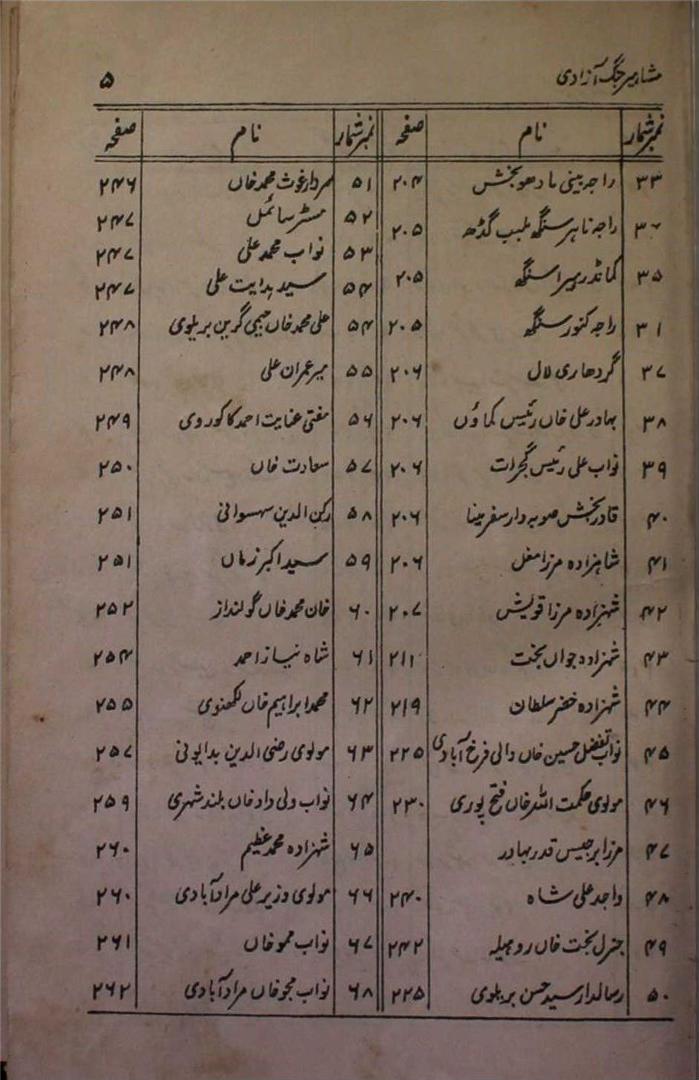 مشاہیر جنگ آزادی ۵
نمبر شمار نام صفحہ
۳۳ راجہ بینی مادھو بخش ۲۰۴
راجہ ناہر سنگھ بلب گڈھ ۲۰۵
۳۵ کمانڈر ہیرا سنگھ ۲۰۵
راجہ کنور سنگھ ۲۰۵
۳۷ گردھاری لال ۲۰۶
۳۸ بہادر علی خاں رئیس کماؤں ۲۰۶
۳۹ نواب علی رئیس گجرات ۲۰۶
۴۰ قادر بخش صوبہ دار سفر مینا ۲۰۶
۴۱ شاہزادہ مرزا مغل ۲۰۶
۴۲ شہزادہ مرزا قویش ۲۰۷
۴۳ شہزادہ جواں بخت ۲۱۱
۴۴ شہزادہ خضر سلطان ۲۱۹
۴۵ نواب تفضل حسین خاں والی فرخ آبادی ۲۲۵
۴۶ مولوی حکمت اللہ خاں فتح پوری ۲۳۰
۴۷ مرزا برجیس قدر بہادر
۴۸ واجد علی شاہ ۲۴۰
۴۹ جنرل بخت خاں روہیلہ ۲۴۲
۵۰ رسالدار سید حسن بریلوی ۲۲۵
نمبر شمار نام صفحہ
۵۱ سردار غوث محمد خاں ۲۴۶
۵۲ مسٹر سائمل ۲۴۷
۵۳ نواب محمد علی ۲۴۷
۵۴ سید ہدایت علی ۲۴۷
۵۴ علی محمد خاں جیمی گرین بریلوی ۲۴۸
۵۵ میر عمران علی ۲۴۸
۵۶ مفتی عنایت احمد کاکوروی ۲۴۹
۵۷ سعادت خاں ۲۵۰
۵۸ رکن الدین سہسوانی ۲۵۱
۵۹ سید اکبر زماں ۲۵۱
۶۰ خان محمد خاں گولنداز ۲۵۲
۶۱ شاہ نیاز احمد ۲۵۴
۶۲ محمد ابراہیم خاں لکھنوی ۲۵۵
۶۳ مولوی رضی الدین بدایونی ۲۵۷
۶۴ نواب ولی داد خاں بلند شہری ۲۵۹
۶۵ شہزادہ محمد عظیم ۲۶۰
۶۶ مولوی وزیر علی مرادآبادی ۲۶۰
۶۷ نواب مموخاں ۲۶۱
۶۸ نواب مجو خاں مرادآبادی ۲۶۲